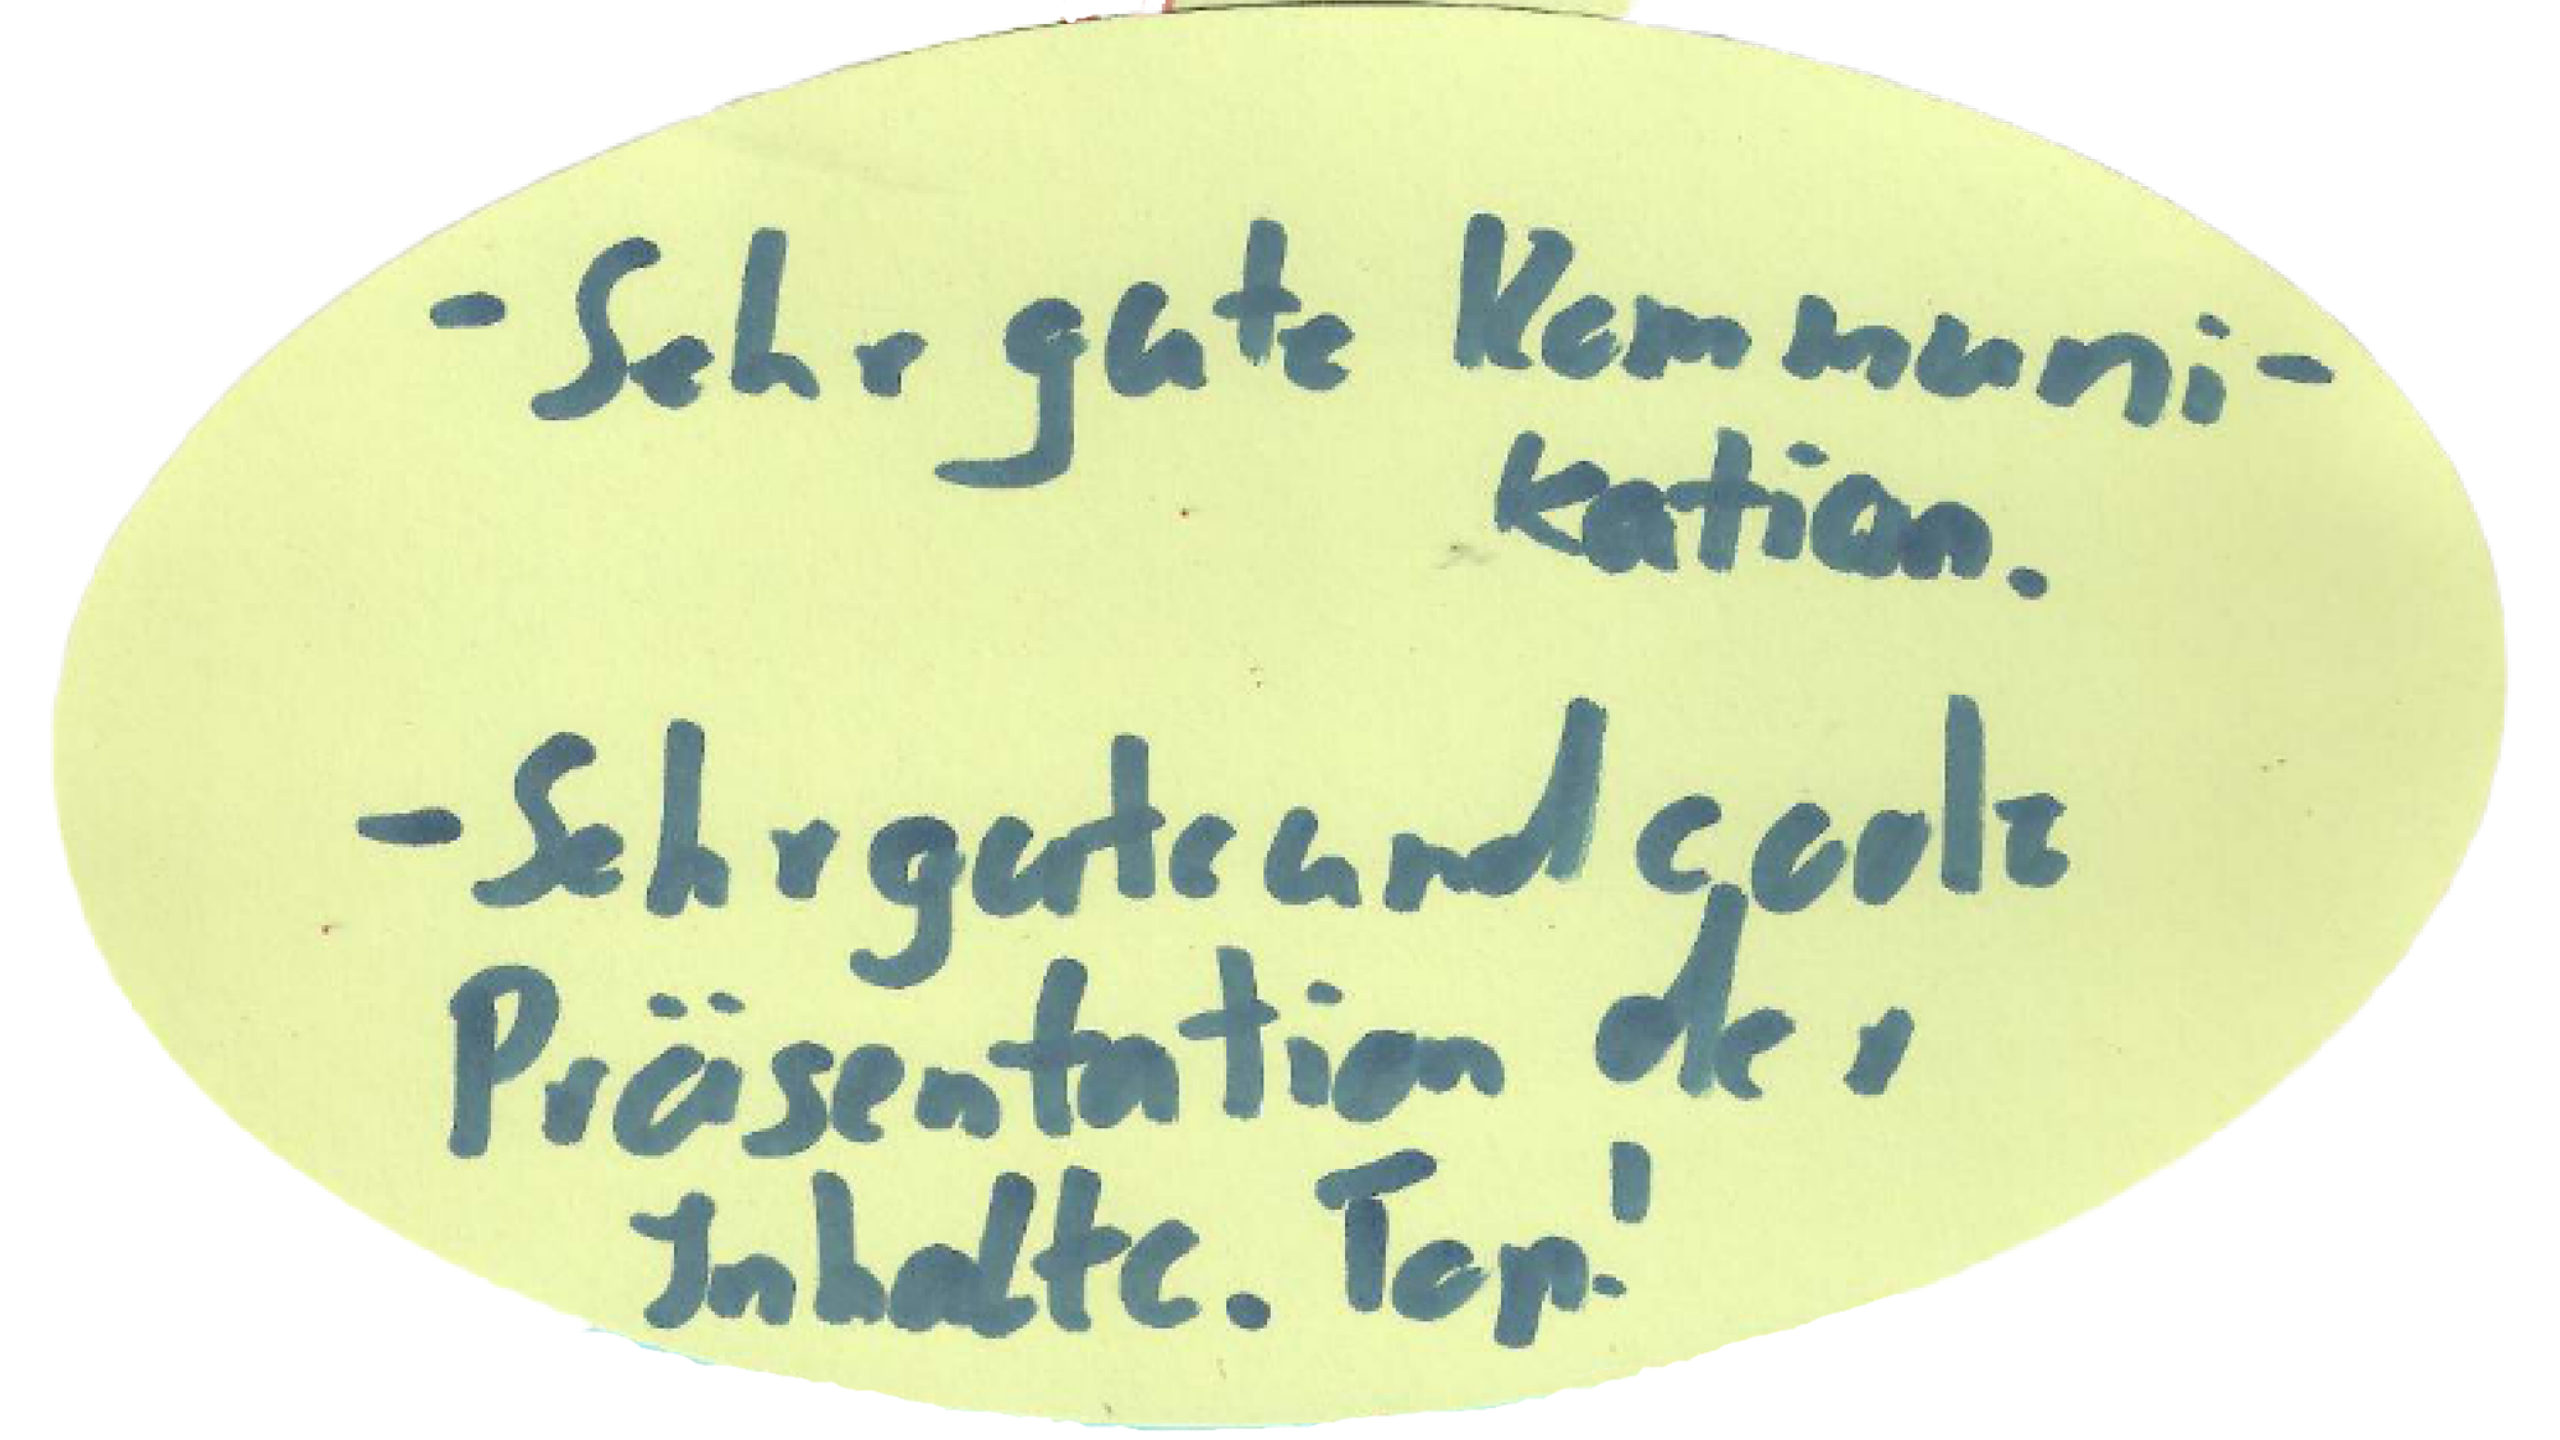 - Sehr gute Kommuni-
kation.
- Sehr gute und coole
Präsentation der
Inhalte. Top!